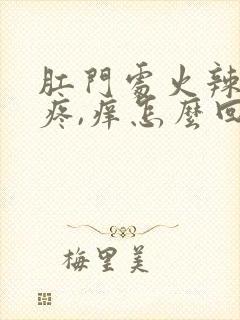 肛門處火辣
疼,癢怎麽回
梅里美